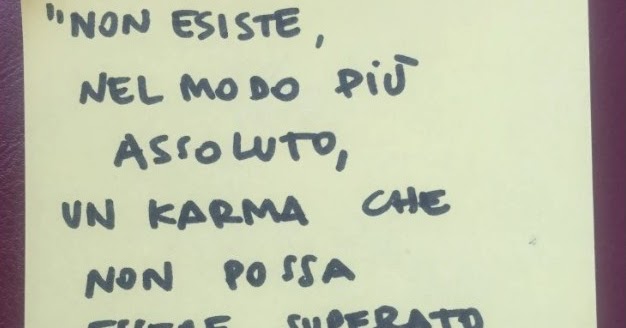 "NON ESISTE,
NEL MODO PIÙ
ASSOLUTO,
UN KARMA CHE
NON POSSA
ESSERE SUPERATO